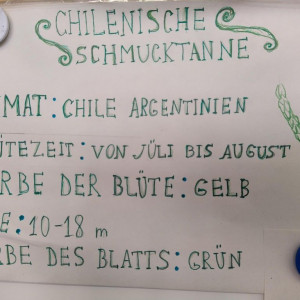 CHILENISCHE
SCHMUCKTANNE
IMAT: CHILE ARGENTINIEN
ÜTEZEIT: VON JÜLI BIS AUGUST
RBE DER BLÜTE: GELB
E: 10-18 m
RBE DES BLATTS: GRÜN